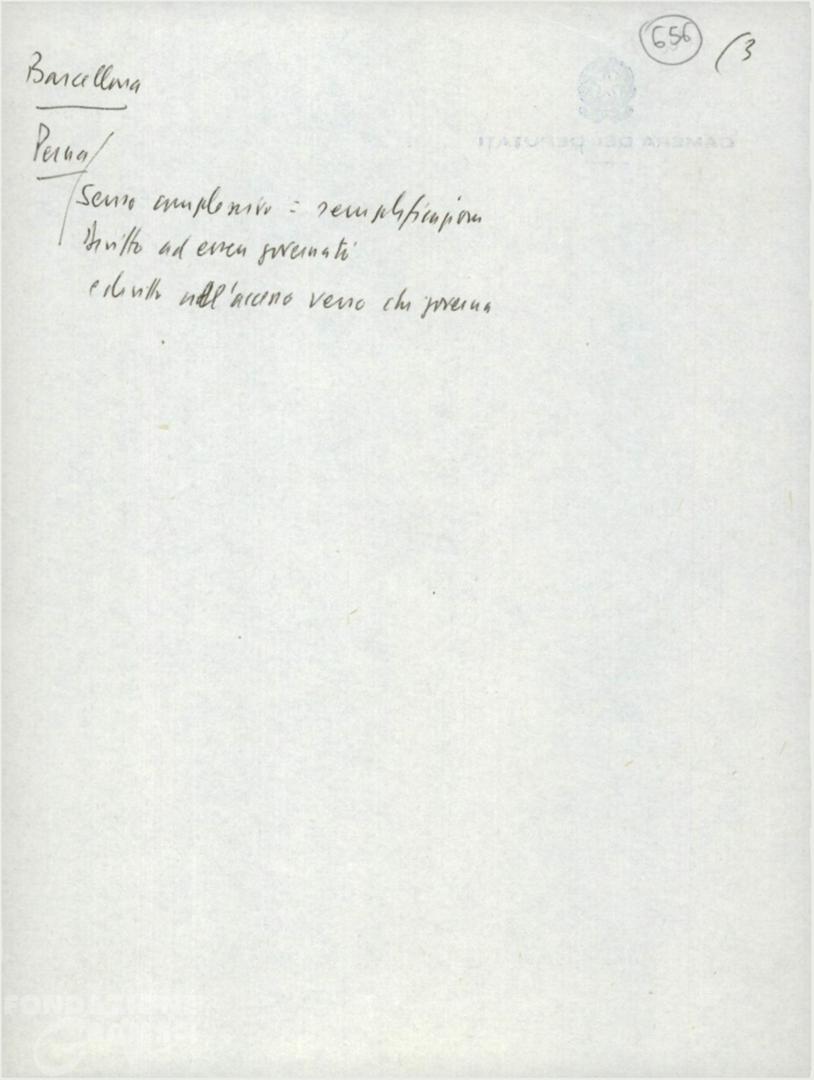 656 (3
CAMERA DEI DEPUTATI
Barcellona
Perna
Senso complessivo = semplificazione
diritto ad essere governati
e diritto all'accesso verso chi governa
FONDAZIONE